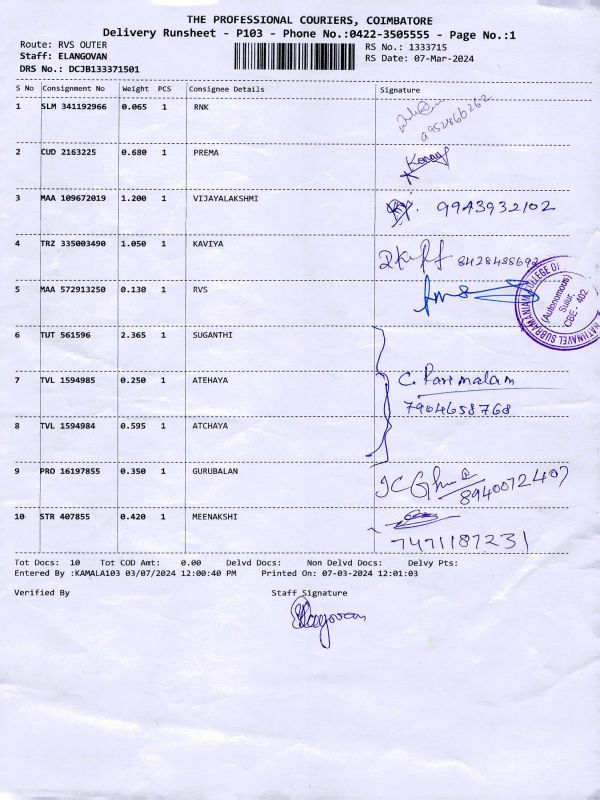 THE PROFESSIONAL COURIERS, COIMBATORE
Delivery Runsheet - P103 - Phone No.:0422-3505555 - Page No.:1
Route: RVS OUTER RS No.: 1333715
Staff: ELANGOVAN RS Date: 07-Mar-2024
DRS No.: DCJB133371501
S No Consignment No Weight PCS Consignee Details Signature
1 SLM 341192966 0.065 1 RNK
9952866262
2 CUD 2163225 0.680 1 PREMA
3 MAA 109672019 1.200 1 VIJAYALAKSHMI 9943932102
4 TRZ 335003490 1.050 1 KAVIYA
5 MAA 572913250 0.130 1 RVS
(Autonomous)
Sulur,
CBE - 402
6 TUT 561596 2.365 1 SUGANTHI
7 TVL 1594985 0.250 1 ATEHAYA C. Parimalam
7904658768
8 TVL 1594984 0.595 1 ATCHAYA
9 PRO 16197855 0.350 1 GURUBALAN 8940072407
10 STR 407855 0.420 1 MEENAKSHI
7471187231
Tot Docs: 10 Tot COD Amt: 0.00 Delvd Docs: Non Delvd Docs: Delvy Pts:
Entered By :KAMALA103 03/07/2024 12:00:40 PM Printed On: 07-03-2024 12:01:03
Verified By Staff Signature
Elangovan